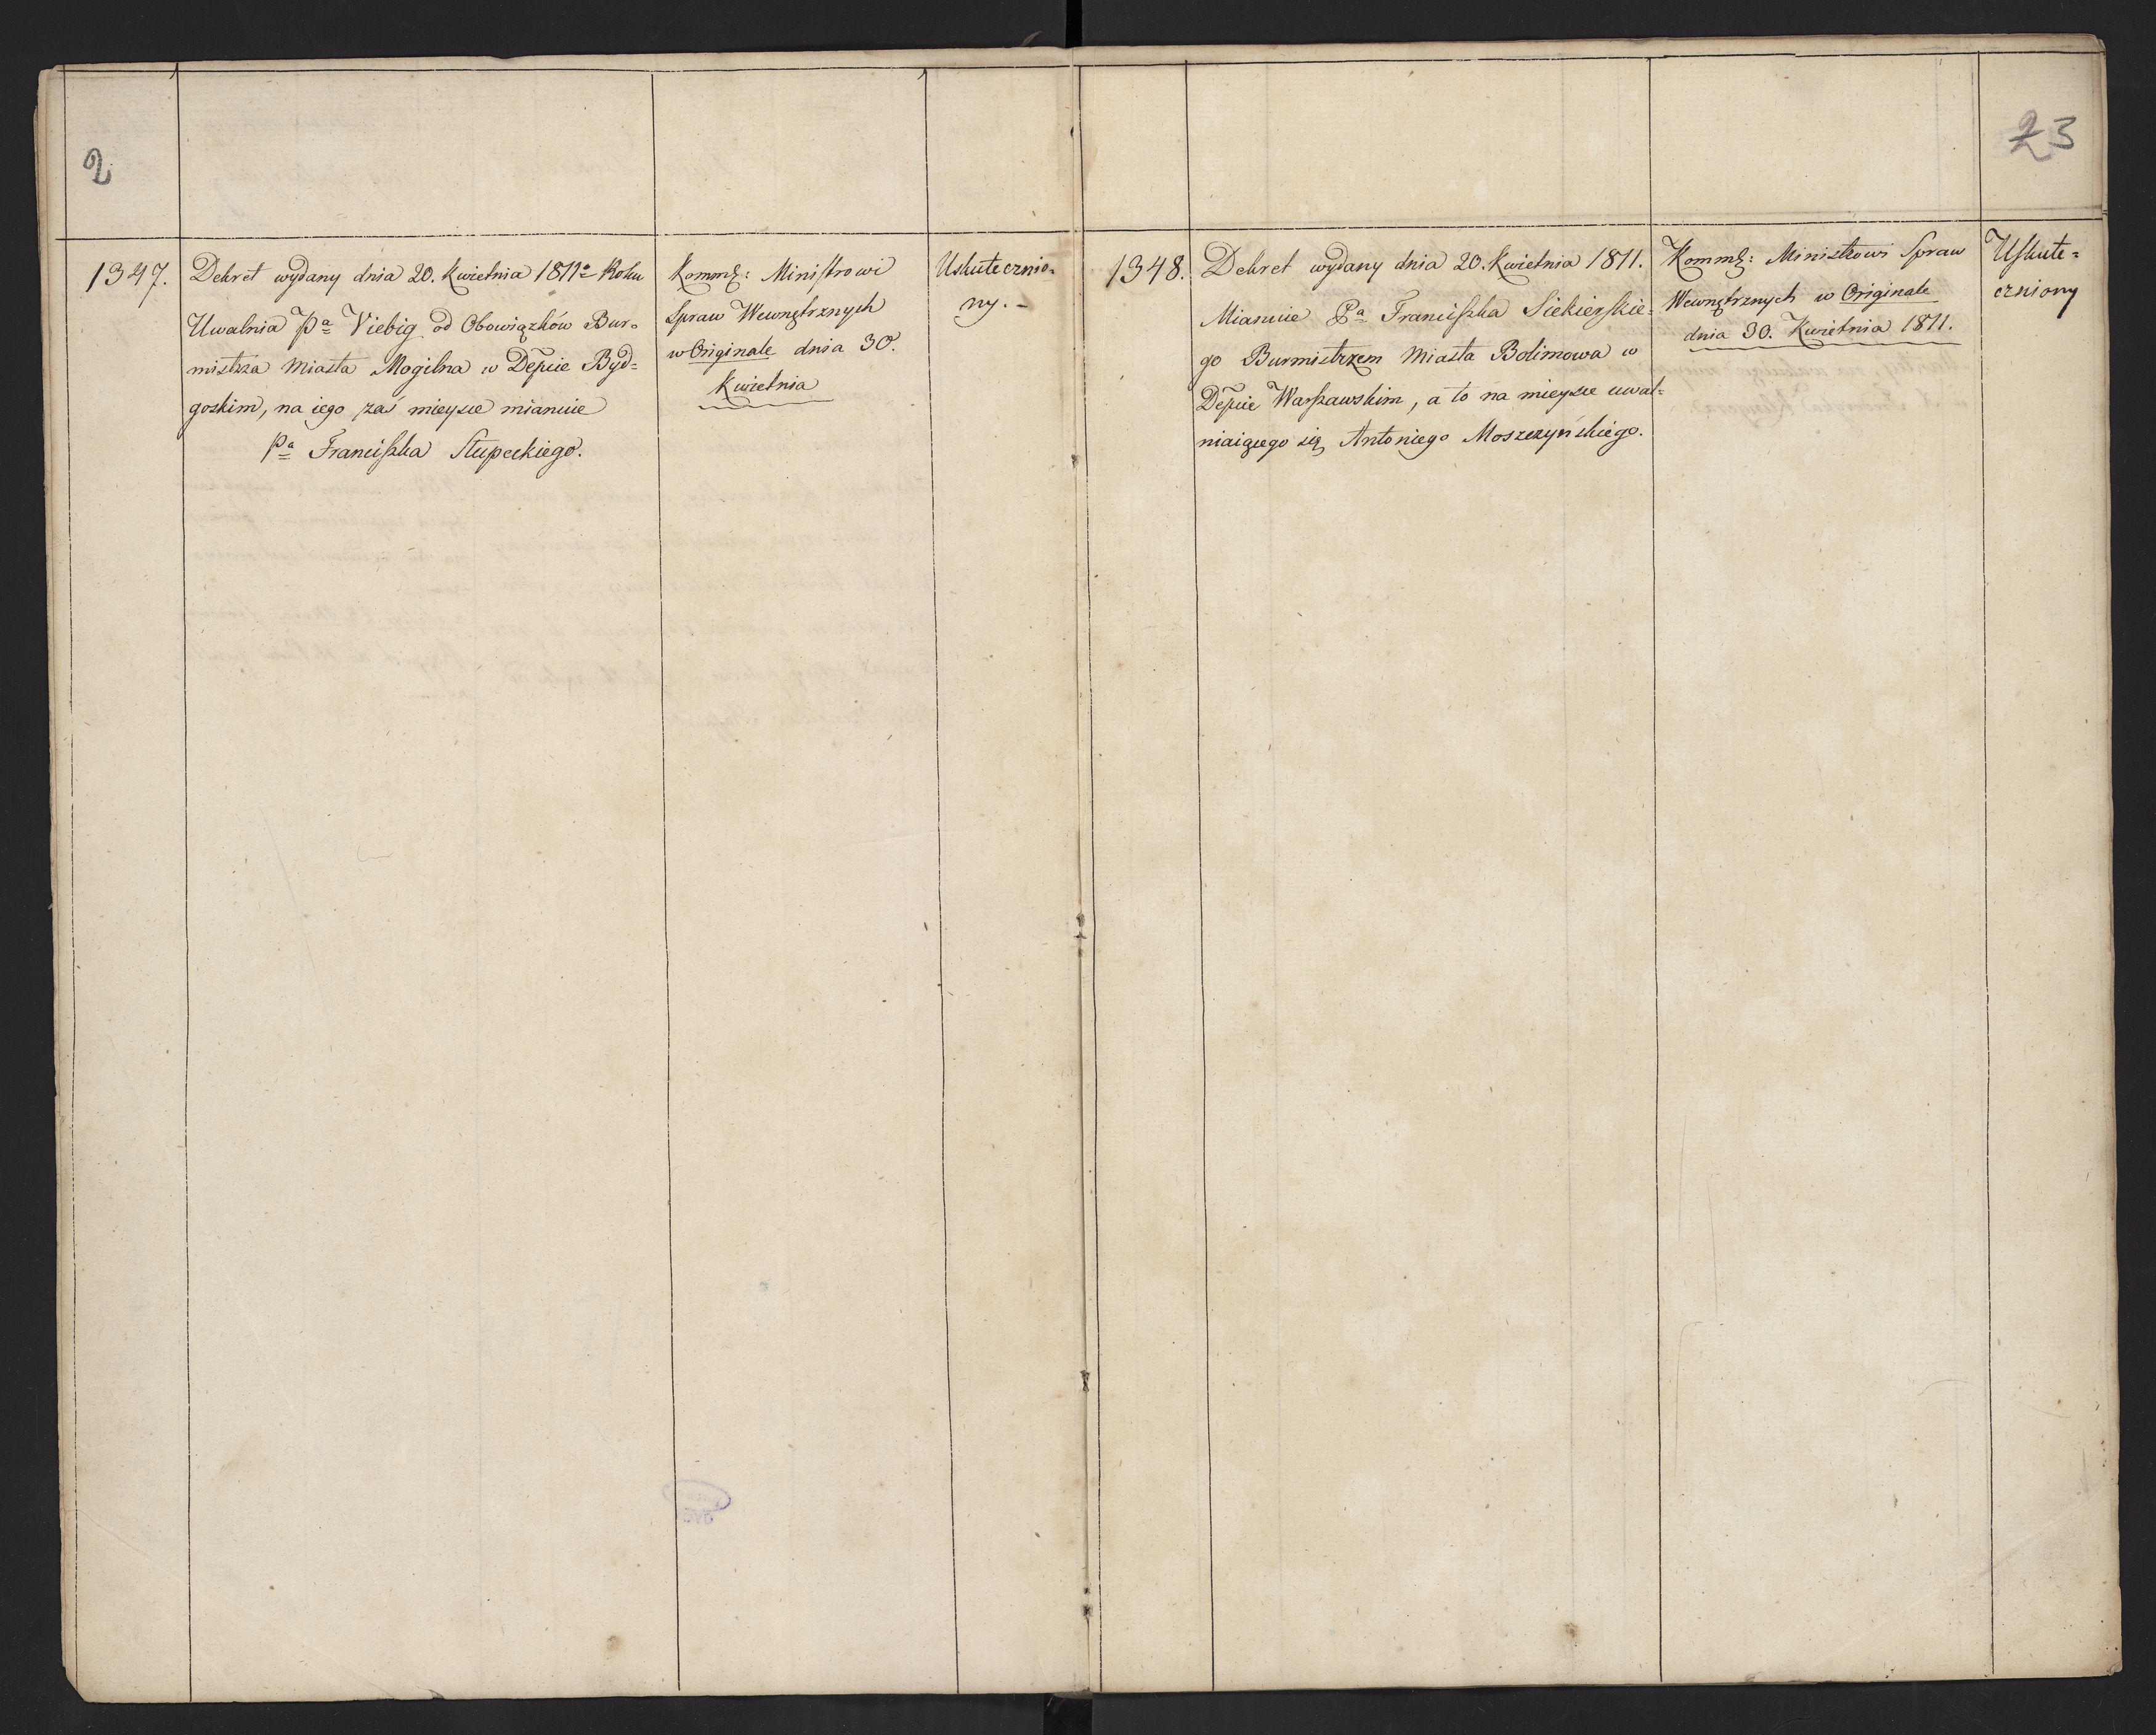 2
1347.
Dekret wydany dnia 20. Kwietnia 1811º Roku
Uwalnia Pª Viebig od Obowiązków Bur=
mistrza Miasta Mogilna w Depcie Byd=
goskim, na iego zaś mieysce mianuie
Pª Franciszka Słupeckiego.
Kommę: Ministrowi
Spraw Wewnętrznych
w Originale dnia 30.
Kwietnia
Uskutecznio=
ny. –
23
1348.
Dekret wydany dnia 20. Kwietnia 1811.
Mianuie Pª Franciszka Siekierskie=
go Burmistrzem Miasta Bolimowa w
Depcie Warszawskim, a to na mieysce uwal=
niaiącego się Antoniego Moszczyńskiego.
Kommę: Ministrowi Spraw
Wewnętrznych w Originale
dnia 30. Kwietnia 1811.
Uskute=
czniony